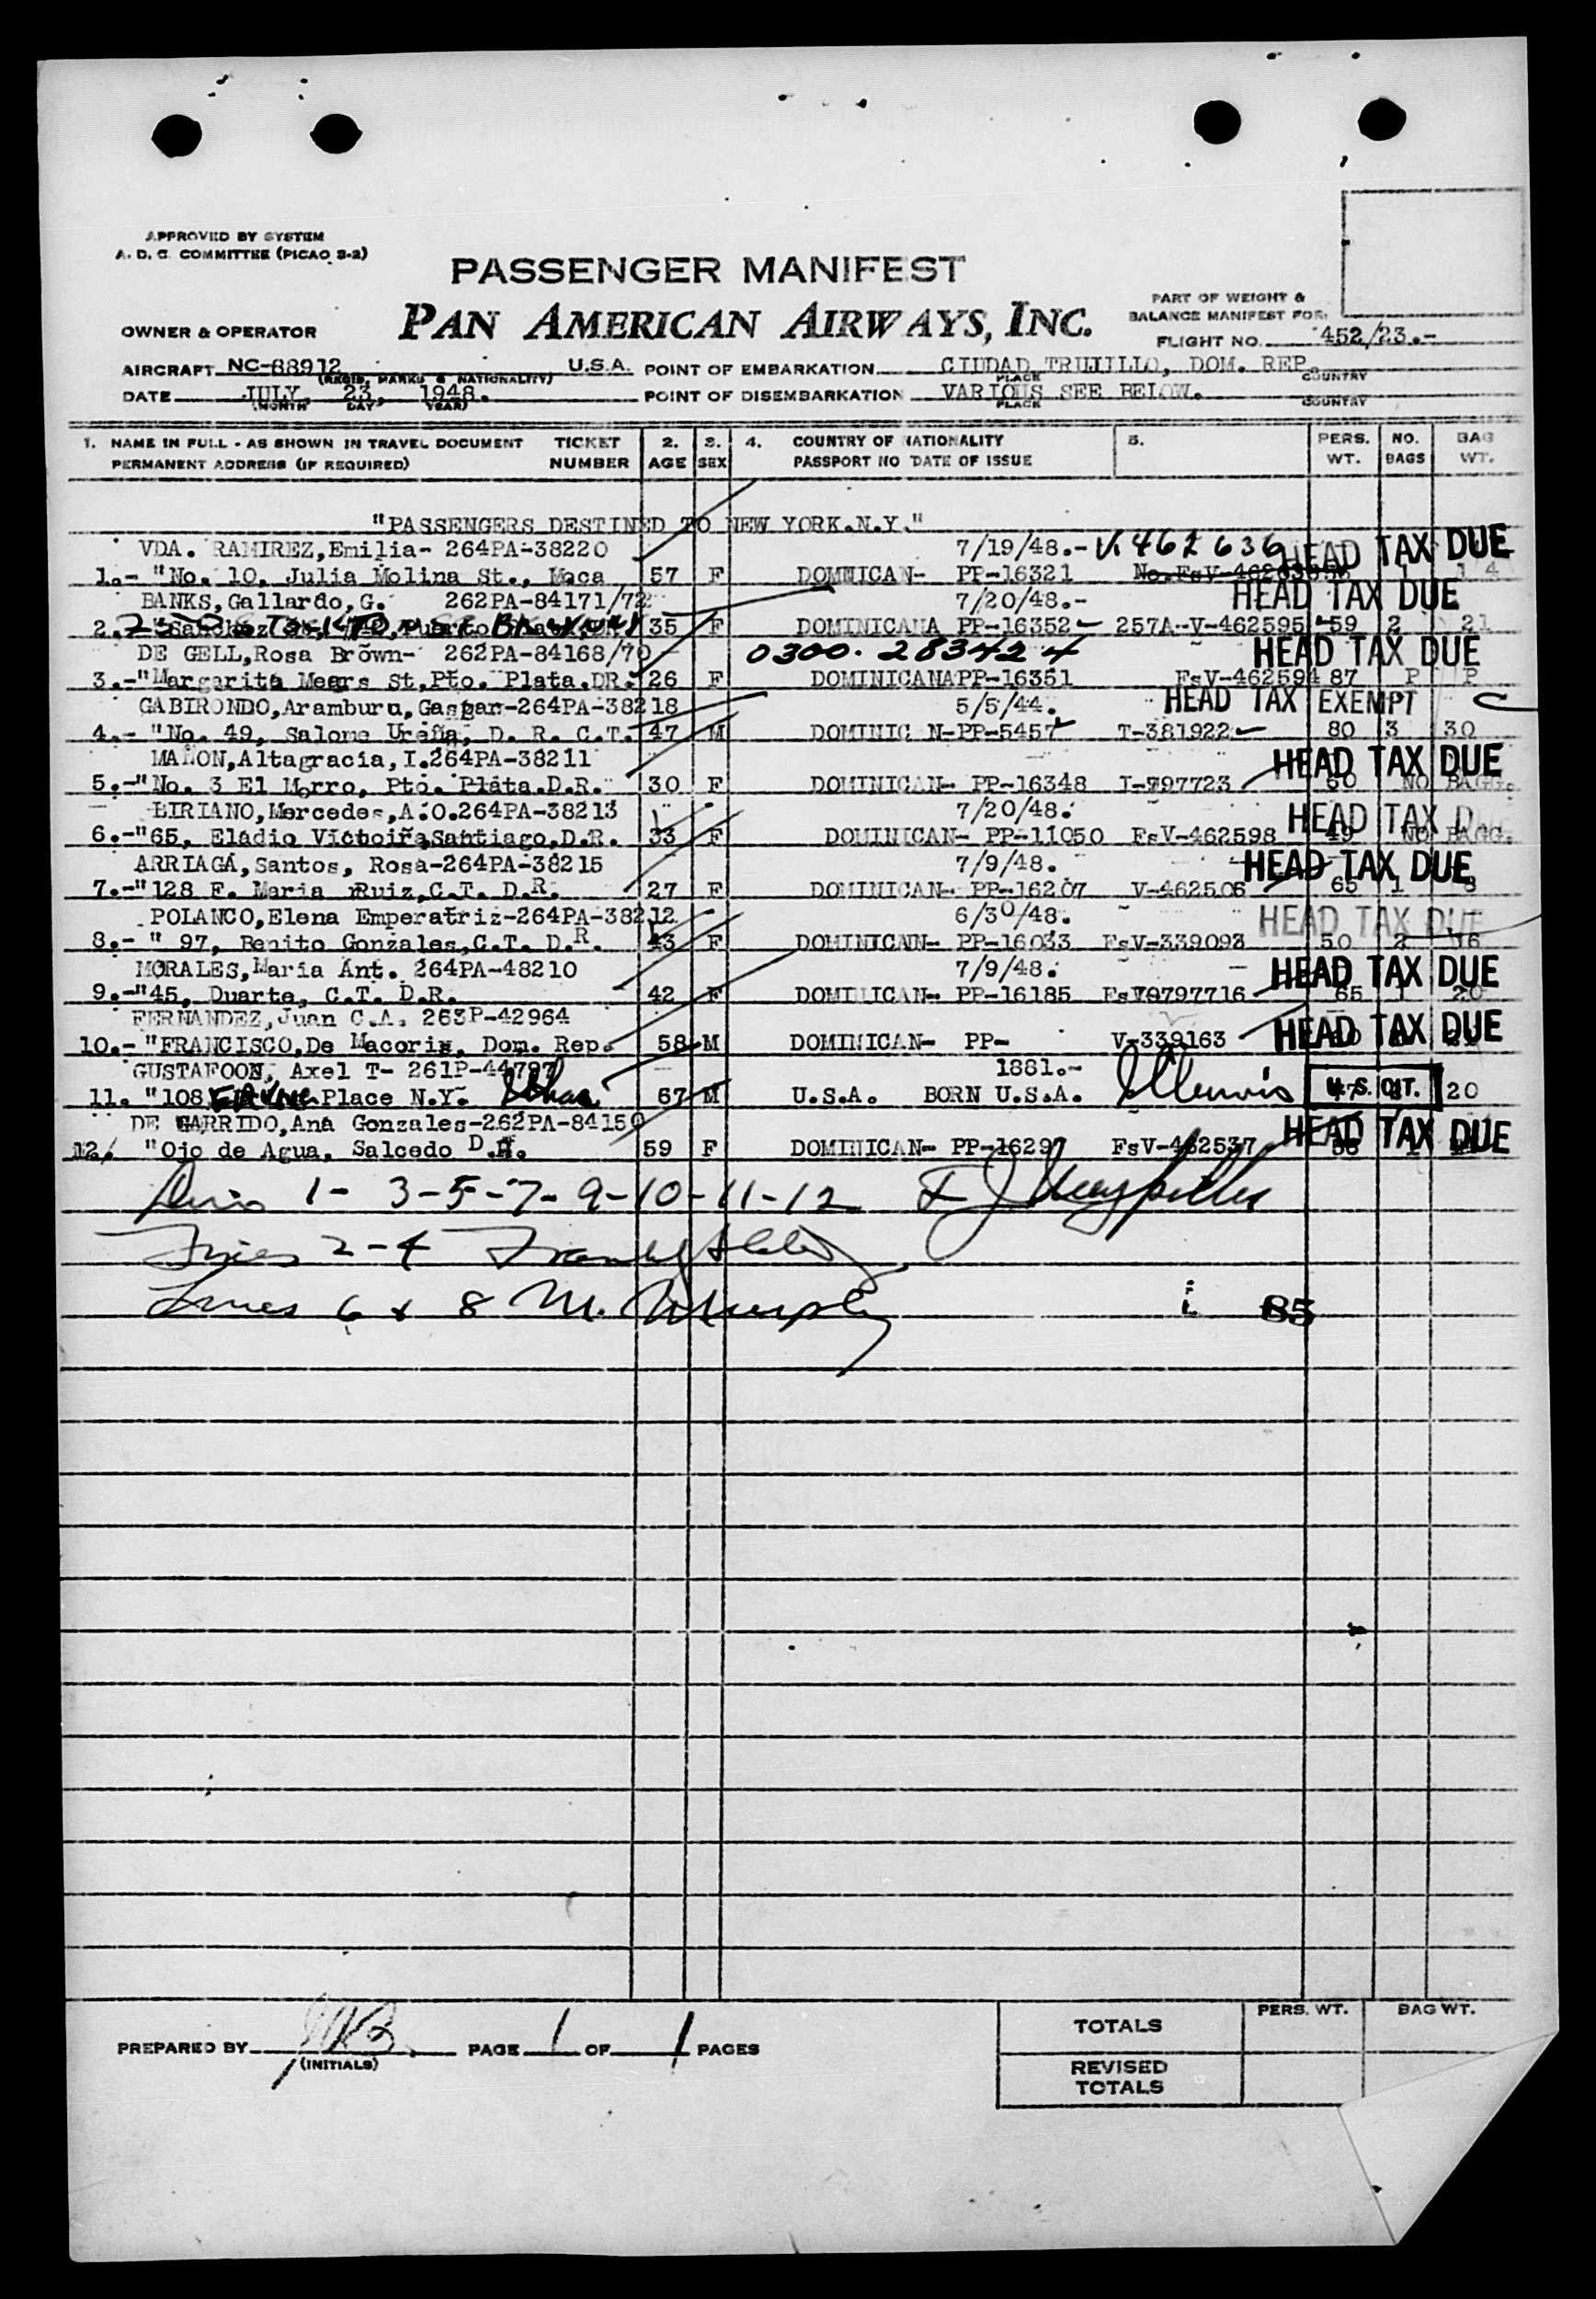 APPROVED BY SYSTEM
A. D. C. COMMITTEE (PICAO S-2)
PASSENGER MANIFEST
PAN AMERICAN AIRWAYS, INC.
PART OF WEIGHT &
BALANCE MANIFEST FOR:
OWNER & OPERATOR
FLIGHT NO. 452/23.-
AIRCRAFT NC-88912 U.S.A. POINT OF EMBARKATION CIUDAD TRUJILLO, DOM. REP.
(REGIS. MARKS & NATIONALITY) PLACE COUNTRY
DATE JULY, 23, 1948. POINT OF DISEMBARKATION VARIOUS SEE BELOW.
(MONTH DAY YEAR) PLACE COUNTRY
1. NAME IN FULL - AS SHOWN IN TRAVEL DOCUMENT TICKET 2. 3. 4. COUNTRY OF NATIONALITY 5. PERS. NO. BAG
PERMANENT ADDRESS (IF REQUIRED) NUMBER AGE SEX PASSPORT NO DATE OF ISSUE WT. BAGS WT.
"PASSENGERS DESTINED TO NEW YORK.N.Y."
VDA. RAMIREZ,Emilia- 264PA-38220 7/19/48.- V.462636 HEAD TAX DUE
1.- "No. 10, Julia Molina St., Moca 57 F DOMINICAN- PP-16321 1 14
BANKS,Gallardo,G. 262PA-84171/72 7/20/48.- HEAD TAX DUE
2.- 35 F DOMINICANA PP-16352 257A-V-462595 59 2 21
DE GELL,Rosa Brown- 262PA-84168/70 0300. 283424 HEAD TAX DUE
3.-"Margarita Mears St,Pto. Plata.DR. 26 F DOMINICANAPP-16351 FsV-462594 87 P P
GABIRONDO,Aramburu,Gaspar-264PA-38218 5/5/44. HEAD TAX EXEMPT
4.- "No. 49, Salome Ureña, D. R. C.T. 47 M DOMINIC N-PP-5457 T-381922 80 3 30
MALON,Altagracia,I.264PA-38211 HEAD TAX DUE
5.-"No. 3 El Morro, Pto. Plata.D.R. 30 F DOMINICAN- PP-16348 I-797723 60 NO BAGG.
LIRIANO,Mercedes,A.O.264PA-38213 7/20/48. HEAD TAX D
6.-"65, Eladio Victoria,Santiago,D.R. 33 F DOMINICAN- PP-11050 FsV-462598 49 NO BAGG.
ARRIAGA,Santos, Rosa-264PA-38215 7/9/48. HEAD TAX DUE
7.-"128 F. Maria Ruiz,C.T. D.R. 27 F DOMINICAN- PP-16207 V-462506 65 1 8
POLANCO,Elena Emperatriz-264PA-38212 6/30/48. HEAD TAX DUE
8.- " 97, Benito Gonzales,C.T. D.R. 43 F DOMINICAN- PP-16033 FsV-339093 50 2 16
MORALES,Maria Ant. 264PA-48210 7/9/48. HEAD TAX DUE
9.-"45, Duarte, C.T. D.R. 42 F DOMINICAN- PP-16185 65 1 20
FERNANDEZ,Juan C.A. 263P-42964 HEAD TAX DUE
10.- "FRANCISCO,De Macoris, Dom. Rep. 58 M DOMINICAN- PP- V-339163
GUSTAFOON, Axel T- 261P-44797 1881.-
11. "108 Place N.Y. 67 M U.S.A. BORN U.S.A. Illinois U.S. CIT. 20
DE GARRIDO,Ana Gonzales-262PA-84150 HEAD TAX DUE
12/ "Ojo de Agua, Salcedo D.R. 59 F DOMINICAN- PP-16297 FsV-462537
1- 3-5-7-9-10-11-12
Lines 2-4
Lines 6 & 8 M. Murphy 85
PREPARED BY (INITIALS) PAGE 1 OF 1 PAGES
TOTALS PERS. WT. BAG WT.
REVISED
TOTALS